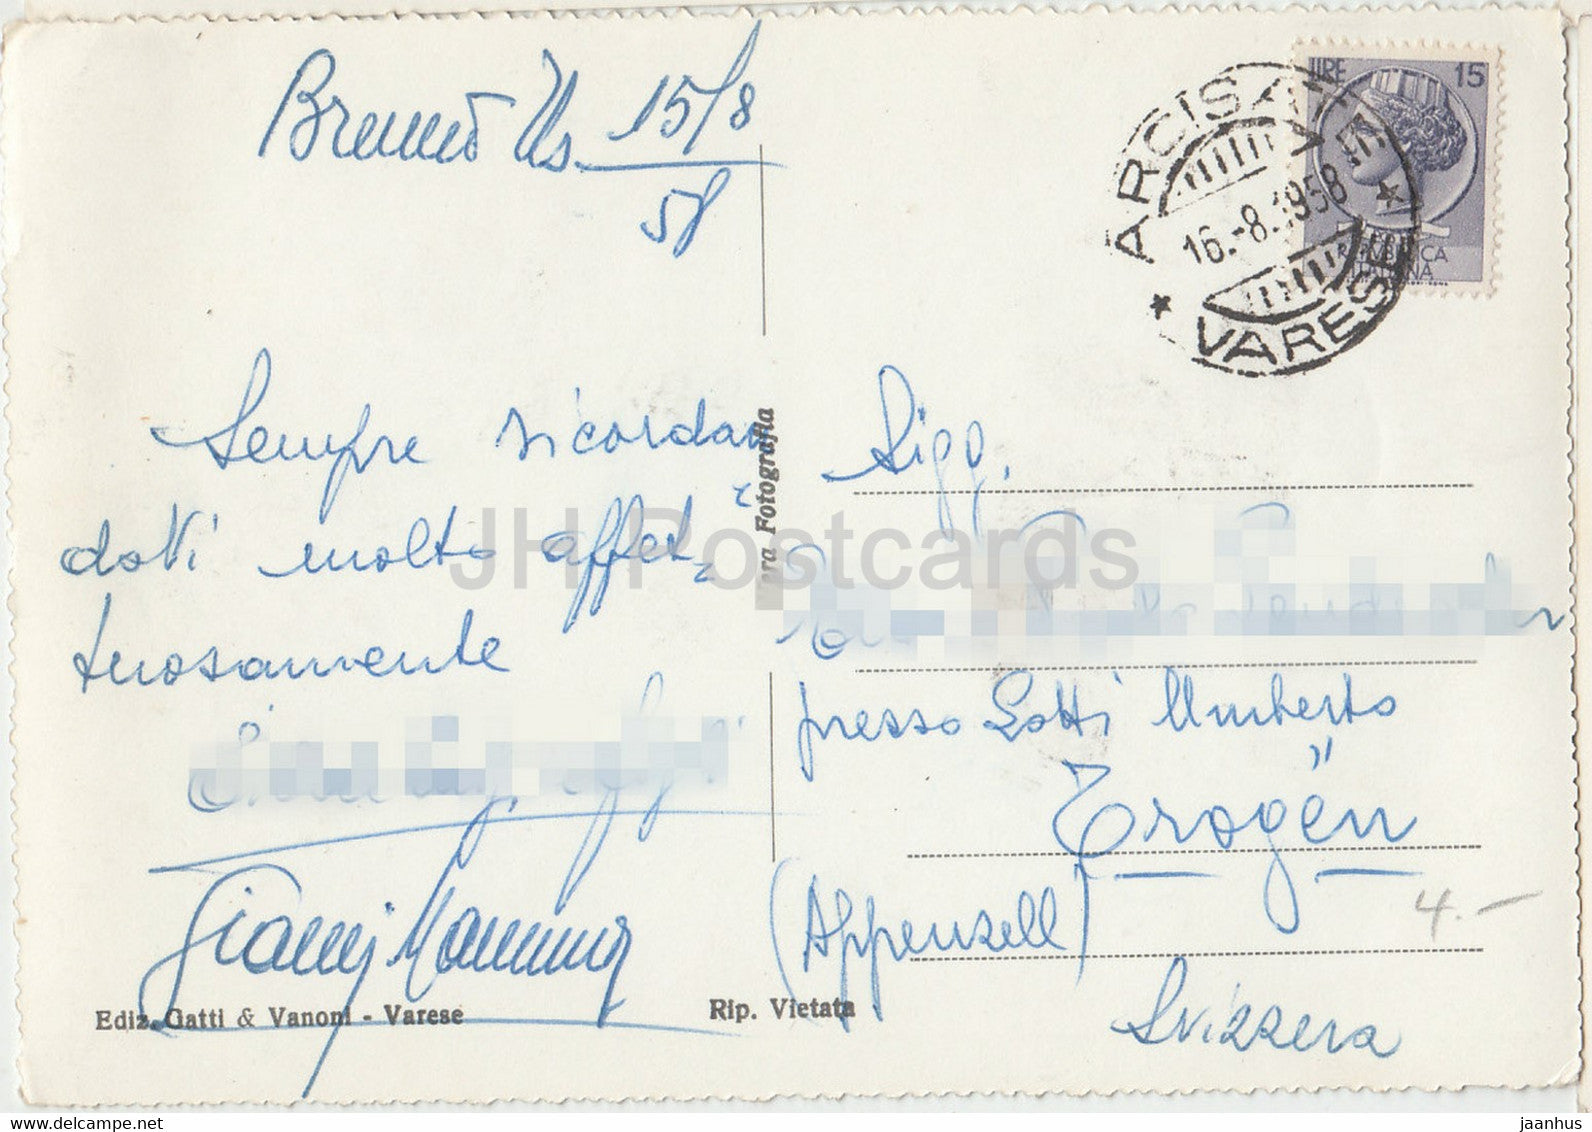 15/8
58
Sempre ricordan
doVi molto affet-
tuosamente
Gianni
Ediz. Gatti & Vanoni - Varese
Rip. Vietata
Vera Fotografia
LIRE 15
REPUBBLICA
ITALIANA
ARCISATE
16.-8.1958
VARESE
Sigg.
presso Lotti Umberto
Trogen
(Appenzell)
Svizzera
4.-
JH Postcards
www.delcampe.net
jaanhus